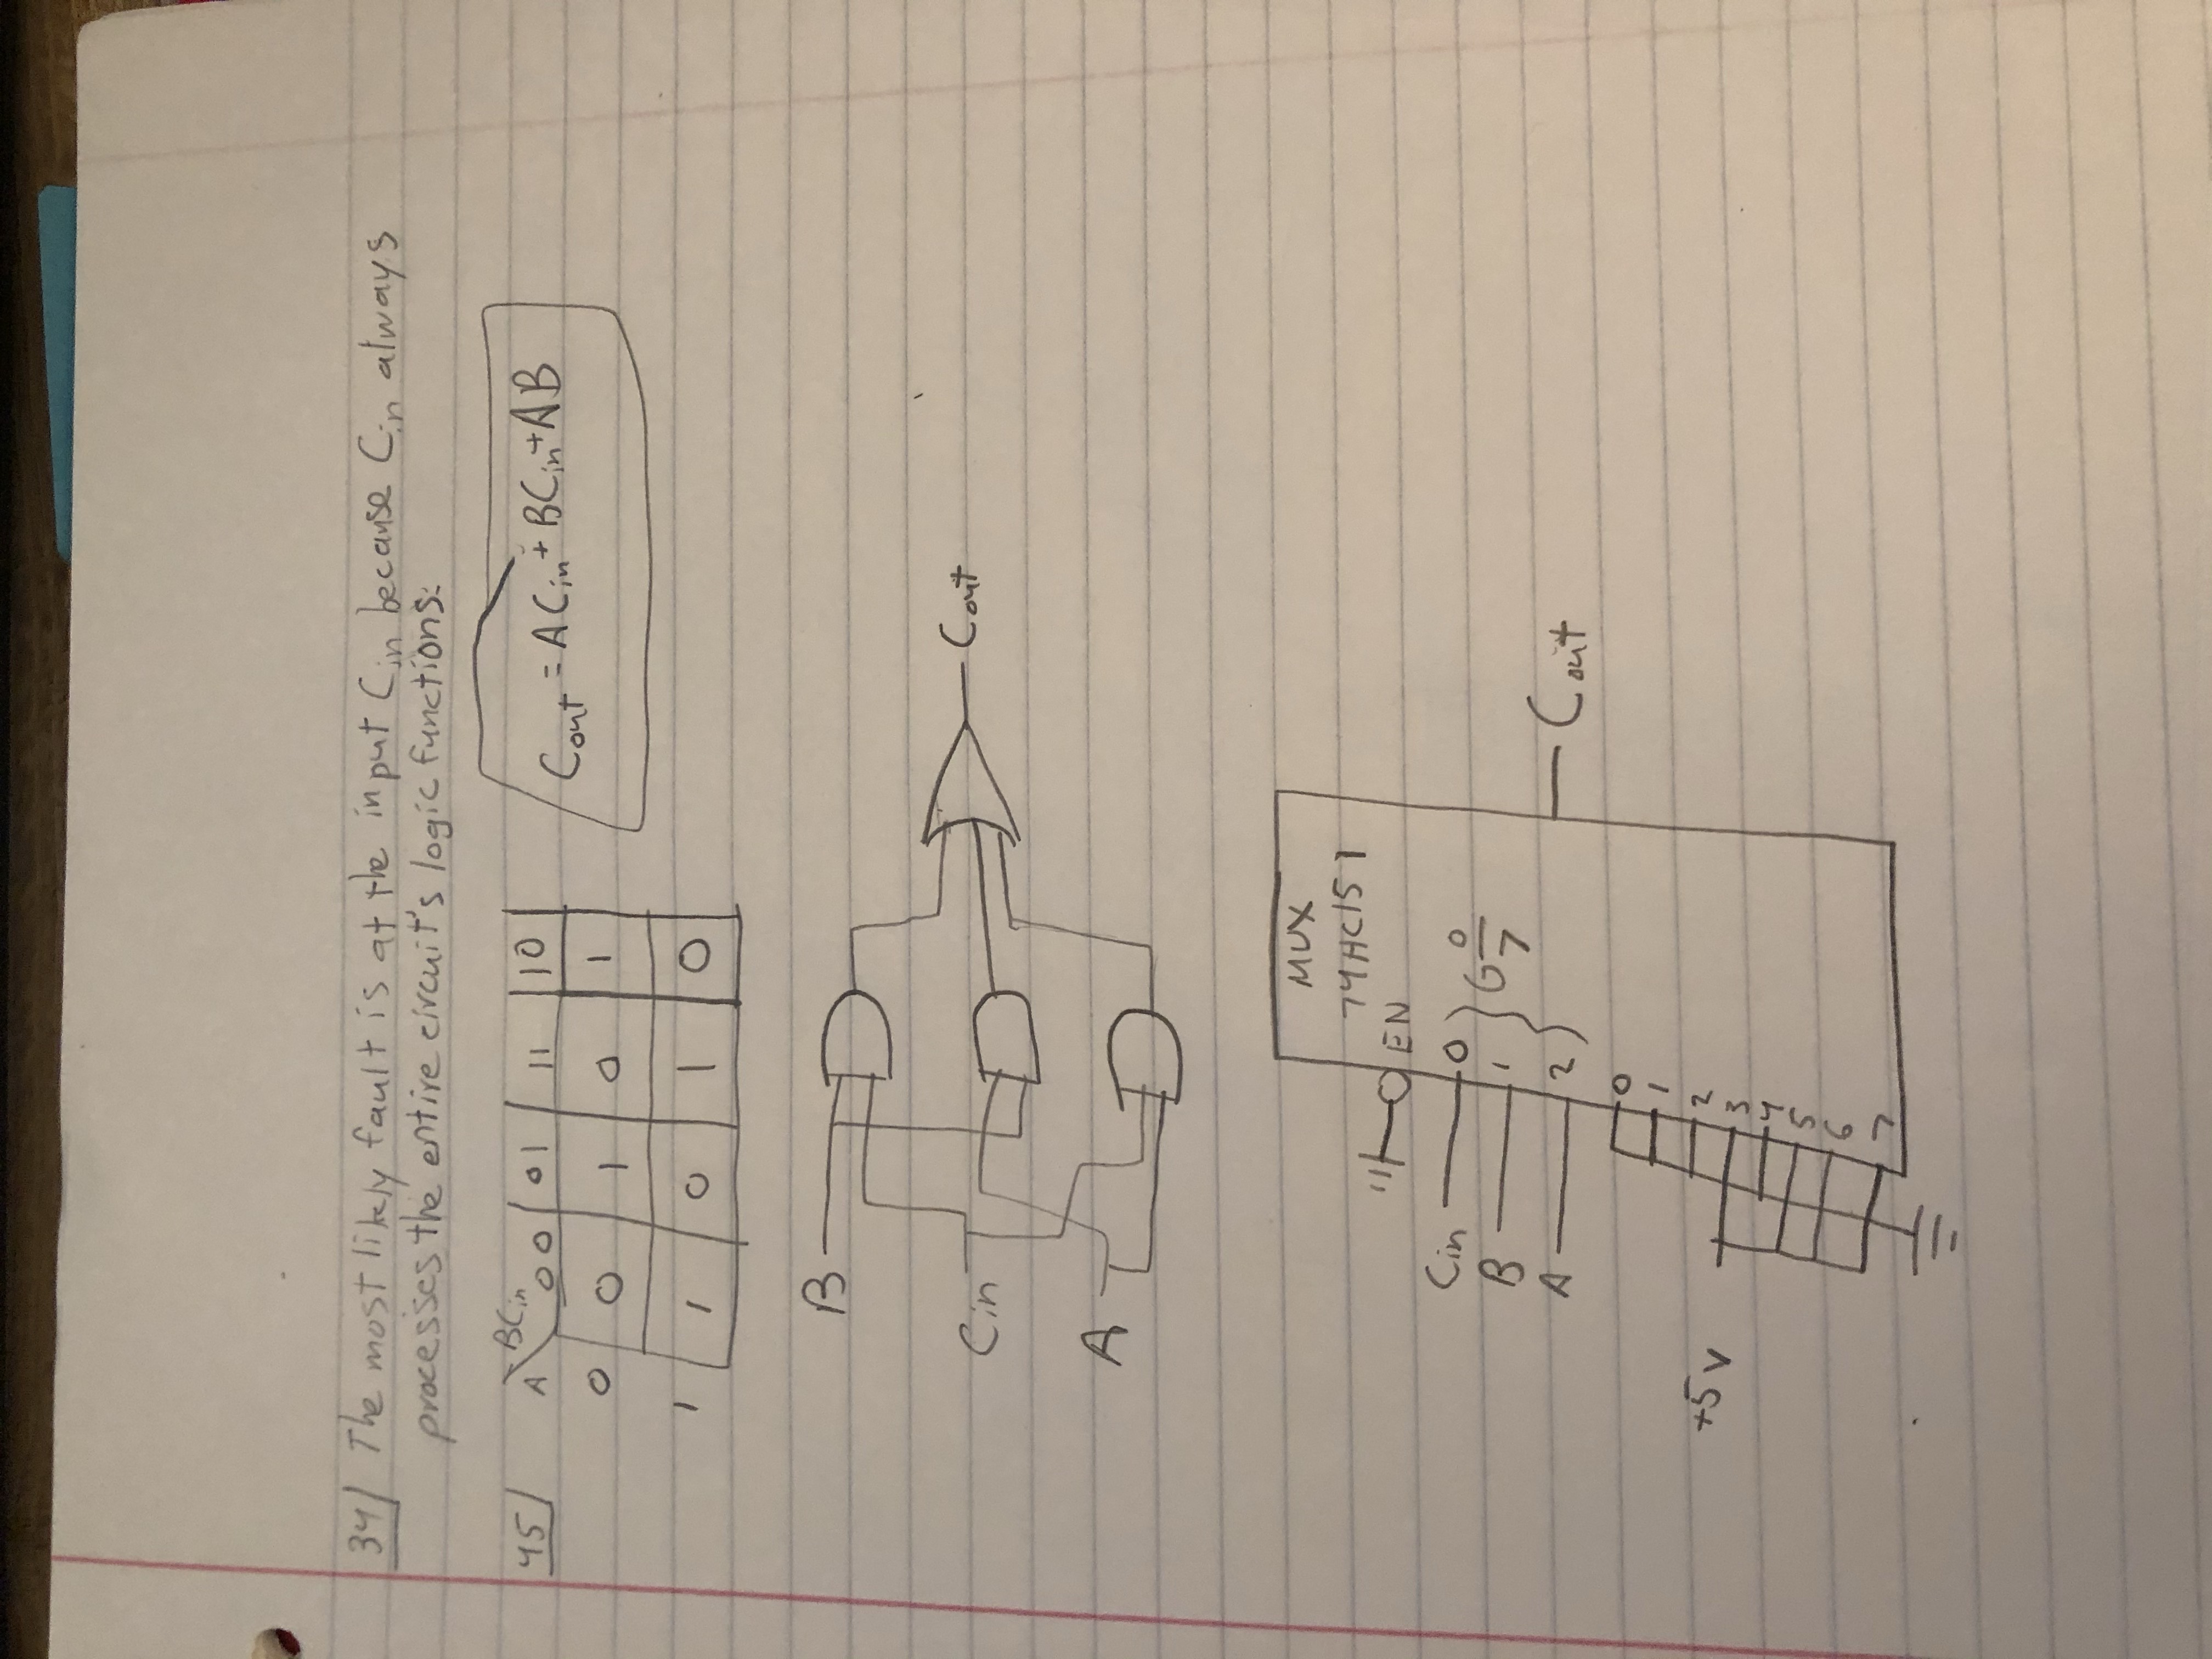 34/ The most likely fault is at the input Cin because Cin always
processes the entire circuit's logic functions.
45/ A BCin 00 01 11 10
0 0 1 0 1
1 1 0 1 0
Cout = ACin + BCin + AB
B
Cin
A
Cout
MUX
74HC151
EN
Cin 0
B 1
A 2
G 0/7
Cout
0
1
2
+5v 3
4
5
6
7